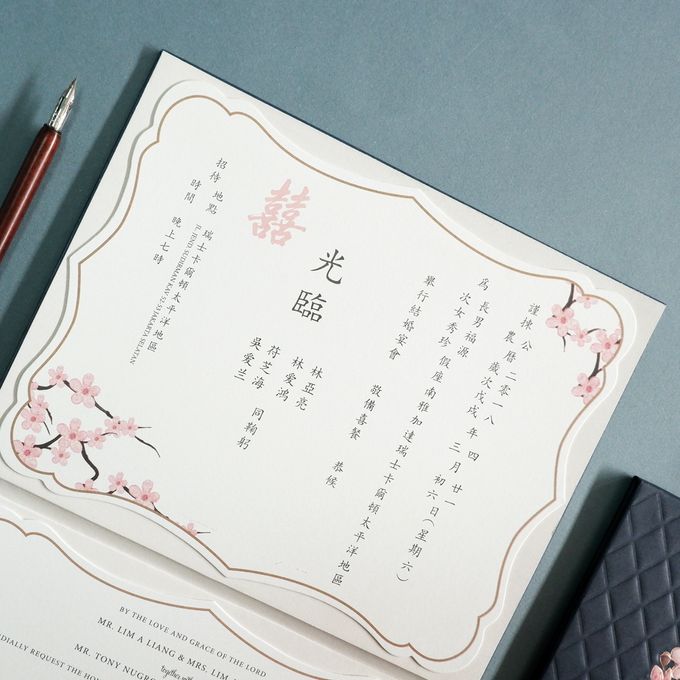 謹揀 公 二零一八 年 四 月 廿一
農曆 歲次戊戌 三 初六日(星期六)
為 長男福源
次女秀珍 假座南雅加達瑞士卡爾頓太平洋地區
舉行結婚宴會 敬備喜餐 恭候
光臨
林亞亮
林愛鴻
符芝海 同鞠躬
吳愛兰
囍
招待 地點 瑞士卡爾頓太平洋地區
JL JEND. SUDIRMAN KAV 52-53 JAKARTA SELATAN
時間 晚上七時
BY THE LOVE AND GRACE OF THE LORD
MR. LIM A LIANG & MRS. LIM
together with
MR. TONY NUGRO
DIALLY REQUEST THE HO